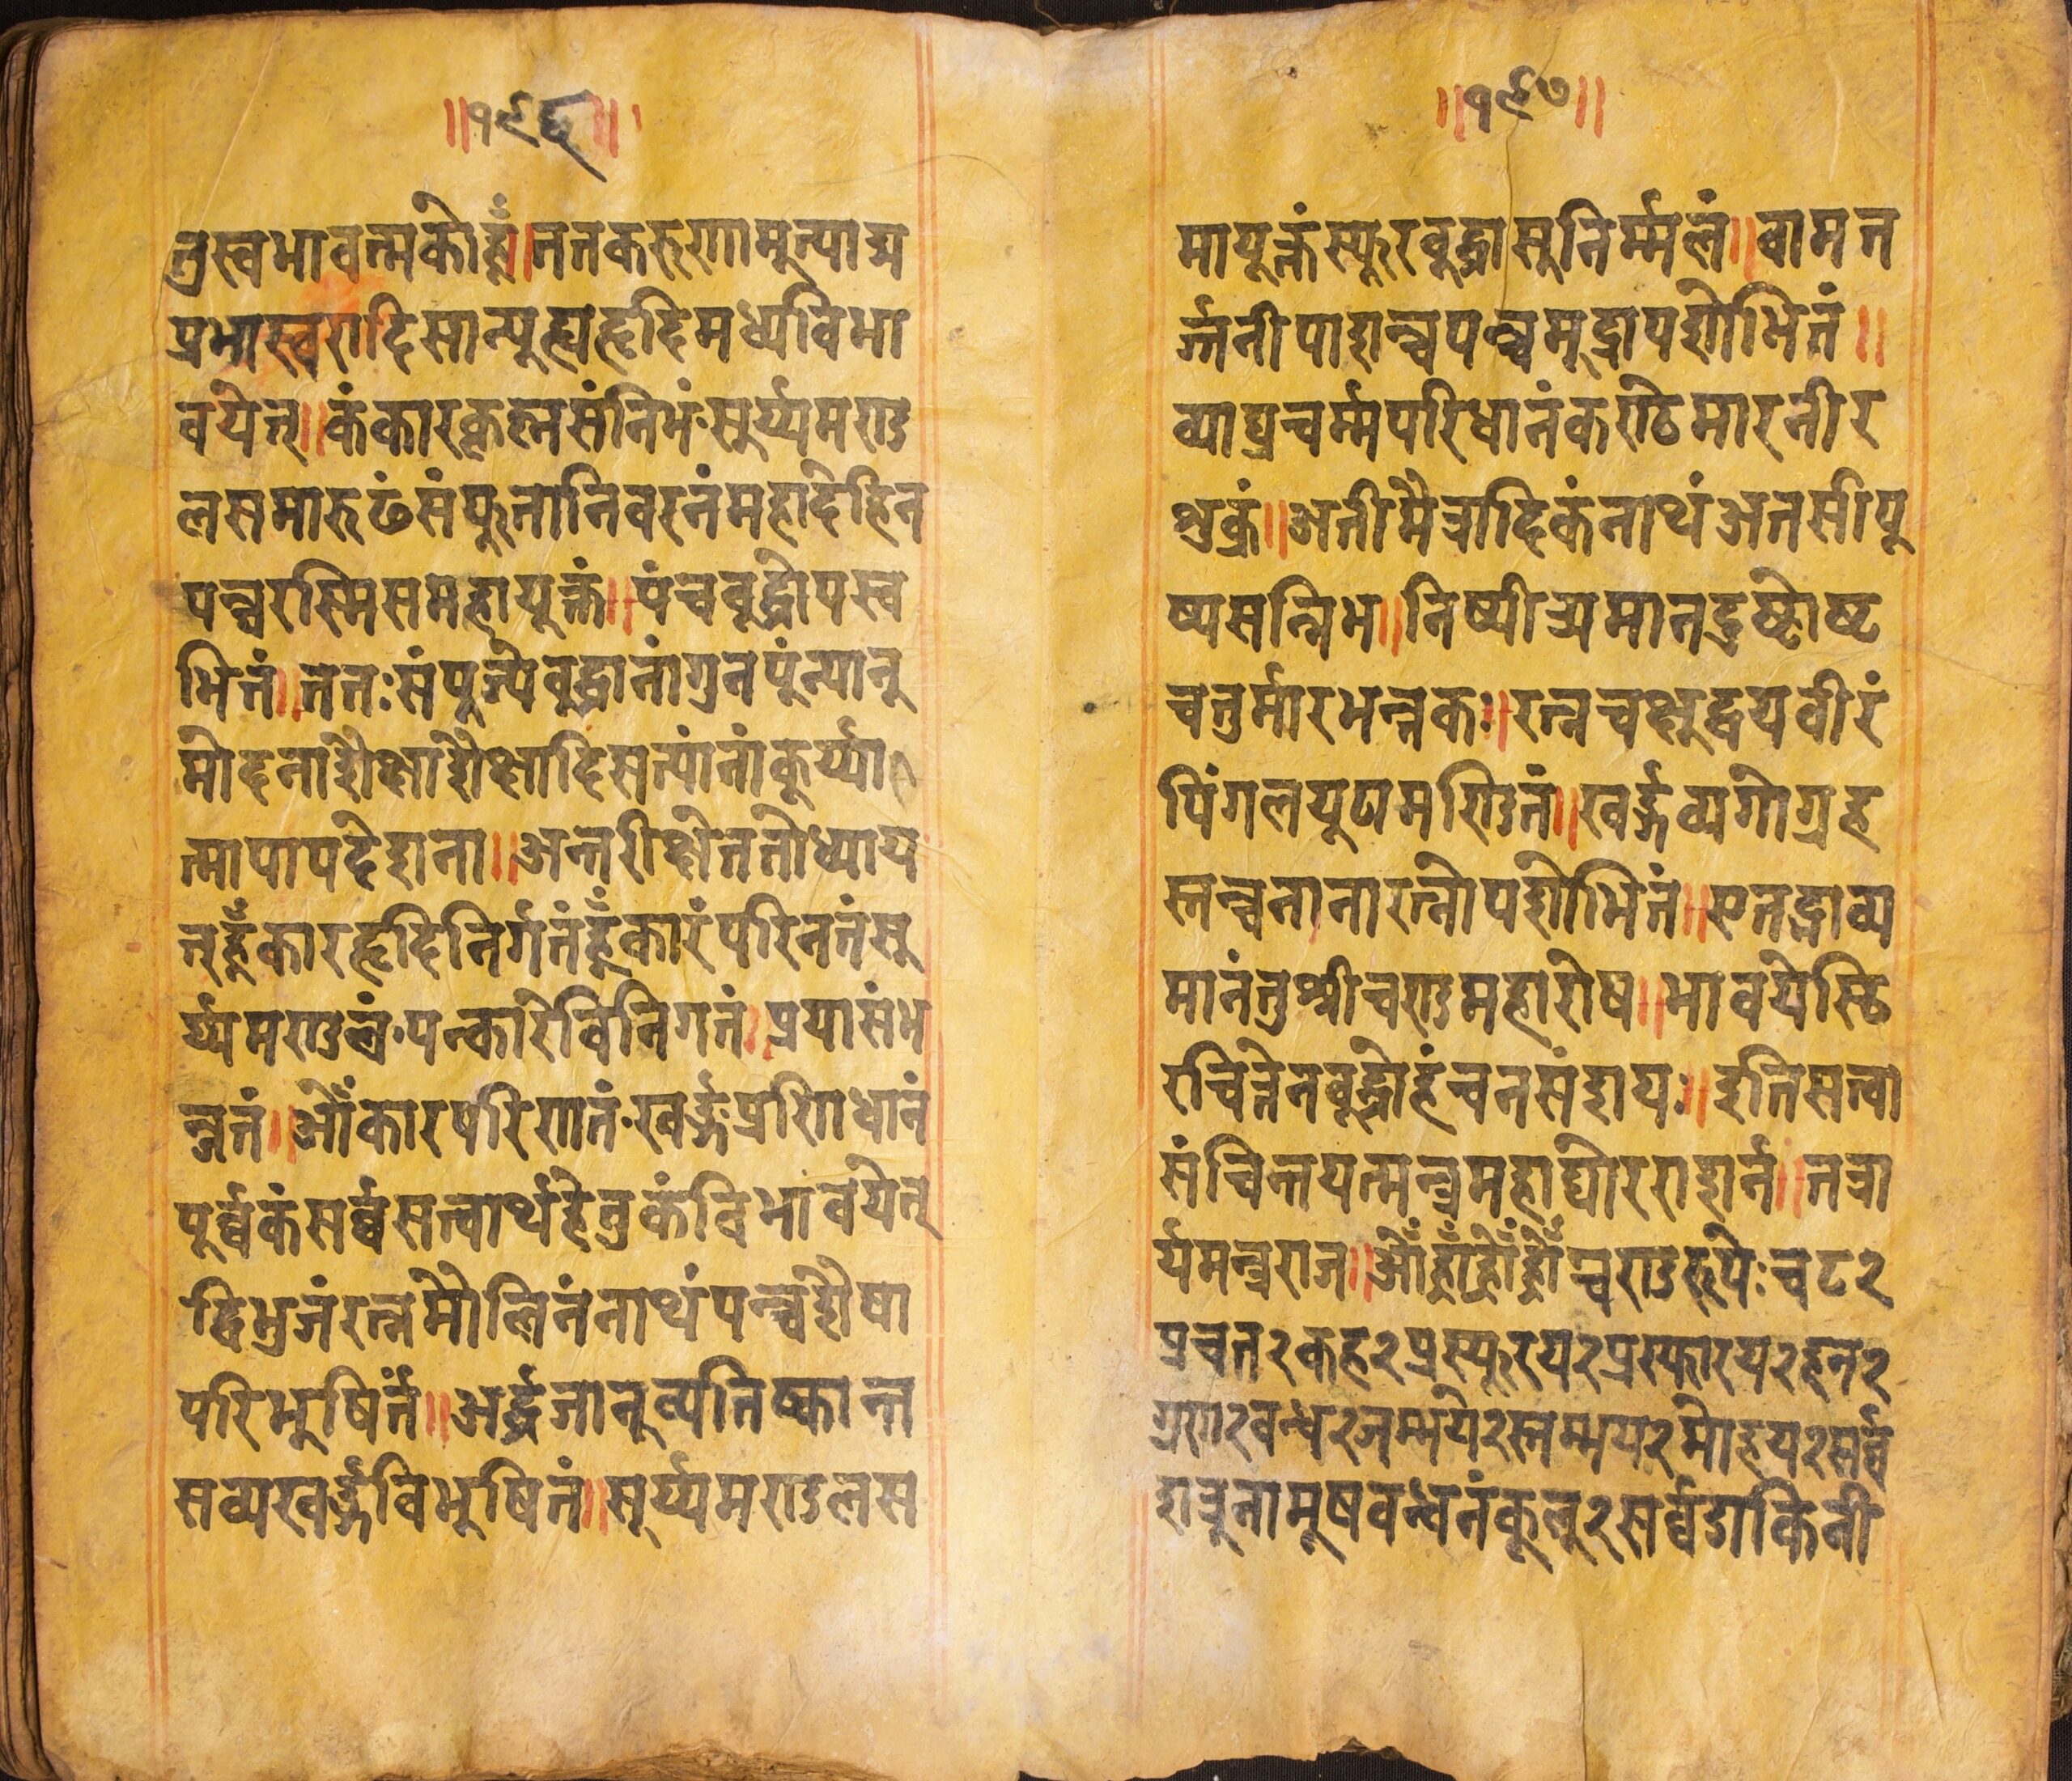 ॥१९६॥
तुस्वभावत्मकोहूँ॥ततकरुणामुत्पाद्य
प्रभास्वरादिसान्पूह्यहृदिमध्यविभा
वयेत्॥कंकारकृत्स्नसंनिभं सुर्य्यमण्ड
लसमारुढंसंफूतानिवरनंमहादेहित
पञ्चरस्मिसमहायूक्तं॥पंचबुद्धोपस्व
भितं॥ततःसंपूज्येबुद्धानांगुनपूंन्यानु
मोदनाशैक्षाशैक्षादिसत्यांनांकूर्य्या
त्मापापदेशना॥अन्तरीक्षेततोध्याय
त्हूँकारहृदिनिर्गतंहूँकारंपरिनतंसु
र्य्यमण्डलं पन्कारेविनिगतं॥प्रयासंभ
न्त्रतं॥ओंकारपरिणतं खर्ङ्गप्रणिधानं
पूर्व्वकंसर्व्वसत्त्वार्थहेतुकंविभावयेत्
द्विभुजंरत्नमौलिनंनाथंपञ्चशैषा
परिभुषिर्तं॥अर्द्धजानुत्पतिष्कान्त
सव्यखर्ङ्गविभुषितं॥सूर्य्यमण्डलस
॥१९७॥
मायूक्तंस्फूरबुद्धासुनिर्म्मलं॥वामत
र्ज्जनीपाशञ्चपञ्चमूद्रापशोभितं॥
व्याघ्रचर्म्मपरिधानंकण्ठेमारनीर
शुक्रं॥अतीमैत्रादिकंनाथंअतसीपू
ष्पसन्निभ॥निष्पीड्यमानदुष्टोष्ट
चतुर्मारभन्नकः॥रत्नचक्षुद्वयवीरं
पिंगलयूपामण्डितं॥खर्ङ्गव्यगोग्रह
स्तञ्चनानारत्नोपशोभितं॥एतद्भाव्य
मानंतुश्रीचण्डमहारोष॥भावयेस्ठि
रचित्तेनबूद्धोहंचनसंशयः॥इतिसत्वा
संचिन्तयत्मन्त्रमहाघोररादार्त॥तत्रा
र्यमन्त्रराज॥ओँह्राँह्रोँह्रौँचण्डरूपेःचट२
प्रचत२कह२प्रस्फूरय२प्रस्फारय२हन२
ग्रण२वन्ध२जम्भय२स्तम्भय२मोहय२सर्व्व
शत्रुनामूषवन्धनंकूलू२सर्व्वडाकिनी